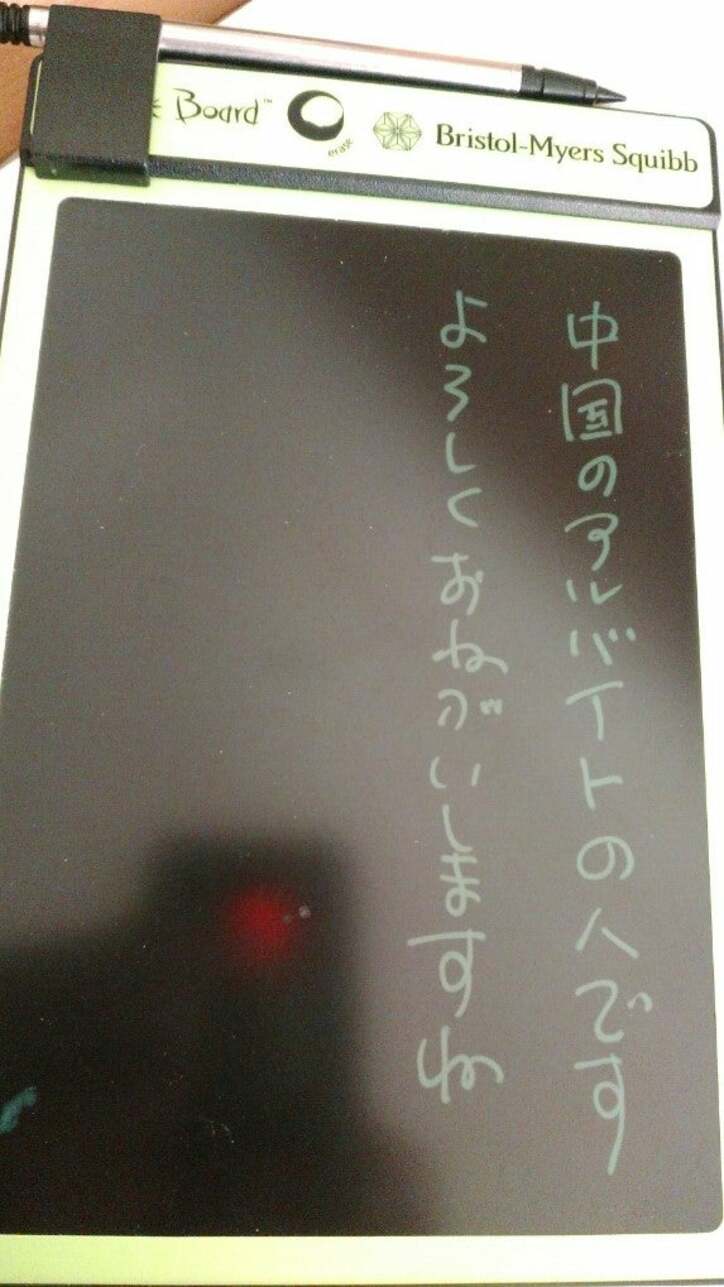 Board™
erase
Bristol-Myers Squibb
中国のアルバイトの人です
よろしくおねがいしますね